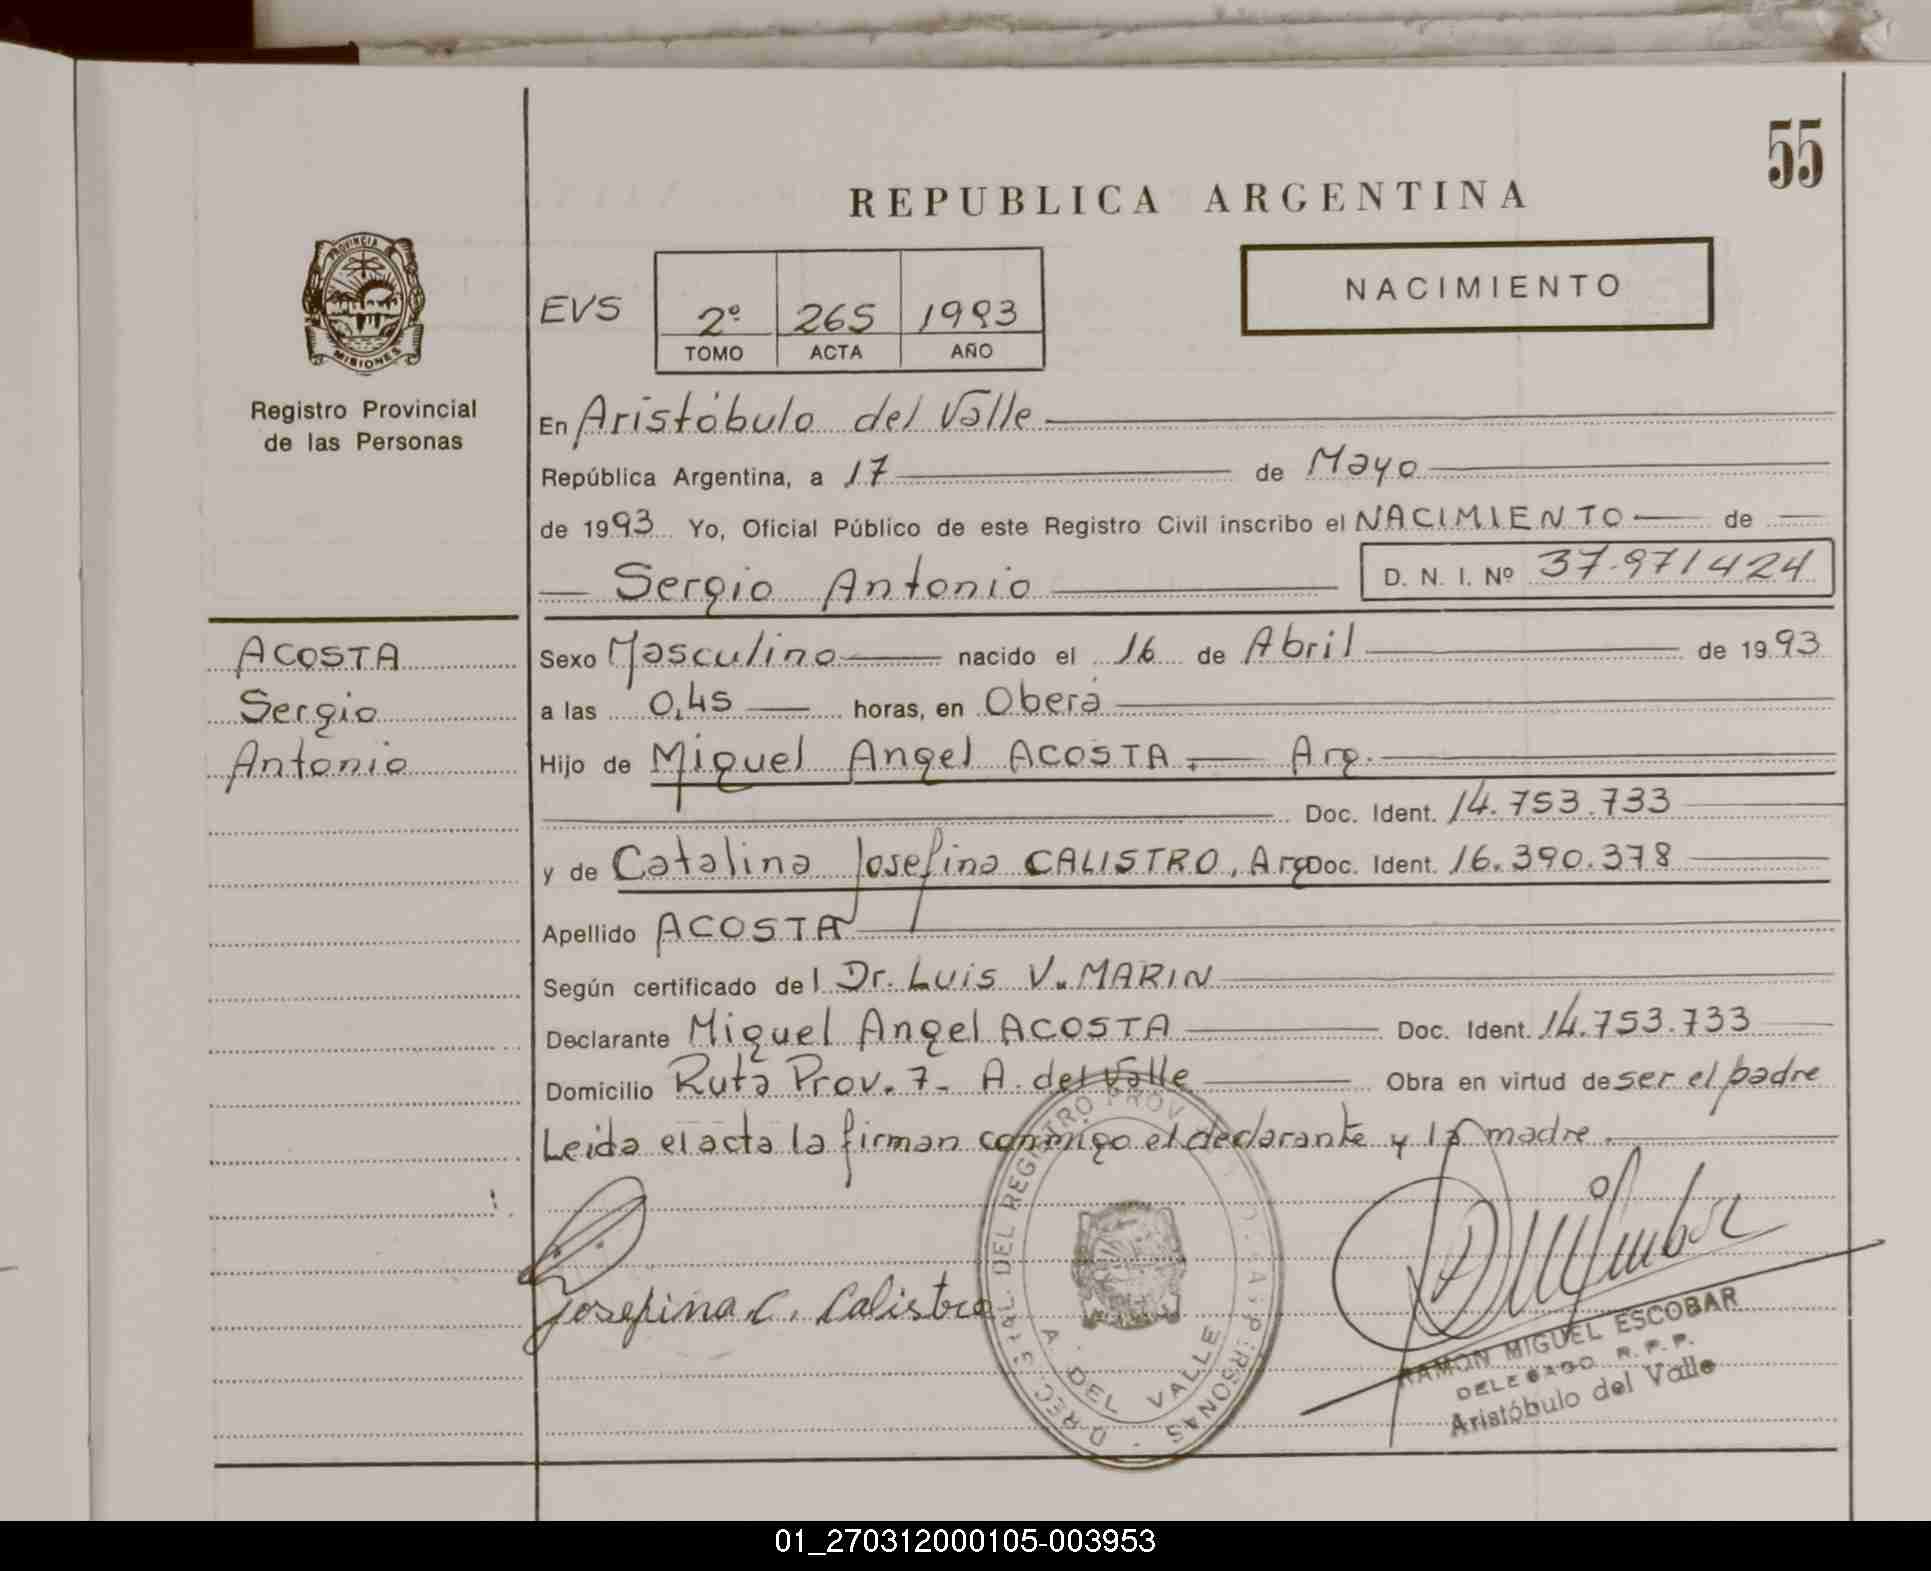 55
REPUBLICA ARGENTINA
PROVINCIA
MISIONES
NACIMIENTO
EVS
2º 265 1993
TOMO ACTA AÑO
Registro Provincial
de las Personas
En Aristóbulo del Valle
República Argentina, a 17 de Mayo
de 1993 Yo, Oficial Público de este Registro Civil inscribo el NACIMIENTO de
Sergio Antonio D. N. I. Nº 37.971424
ACOSTA
Sergio
Antonio
Sexo Masculino nacido el 16 de Abril de 1993
a las 0,45 horas, en Oberá
Hijo de Miguel Angel ACOSTA. Arg.
Doc. Ident. 14.753.733
y de Catalina Josefina CALISTRO, Arg Doc. Ident. 16.390.378
Apellido ACOSTA
Según certificado del Dr. Luis V. MARIN
Declarante Miguel Angel ACOSTA Doc. Ident. 14.753.733
Domicilio Ruta Prov. 7- A. del Valle Obra en virtud de ser el padre
Leida el acta la firman conmigo el declarante y la madre.
Josefina C. Calistro
DEL REGISTRO PROV
A. DEL VALLE
RAMON MIGUEL ESCOBAR
DELEGADO R. P. P.
Aristóbulo del Valle
01_270312000105-003953